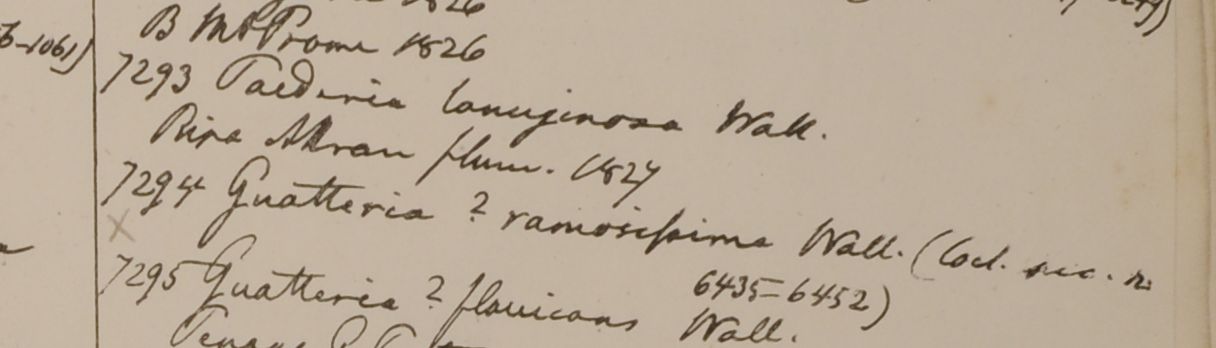 1826
B Mt Prome 1826
6-1061)
7293 Paederia lanuginosa Wall.
Ripa Attran flum. 1827
7294 Guatteria ? ramosissima Wall. (Cocl. sec. n.
6435-6452)
7295 Guatteria ? flavicans Wall.